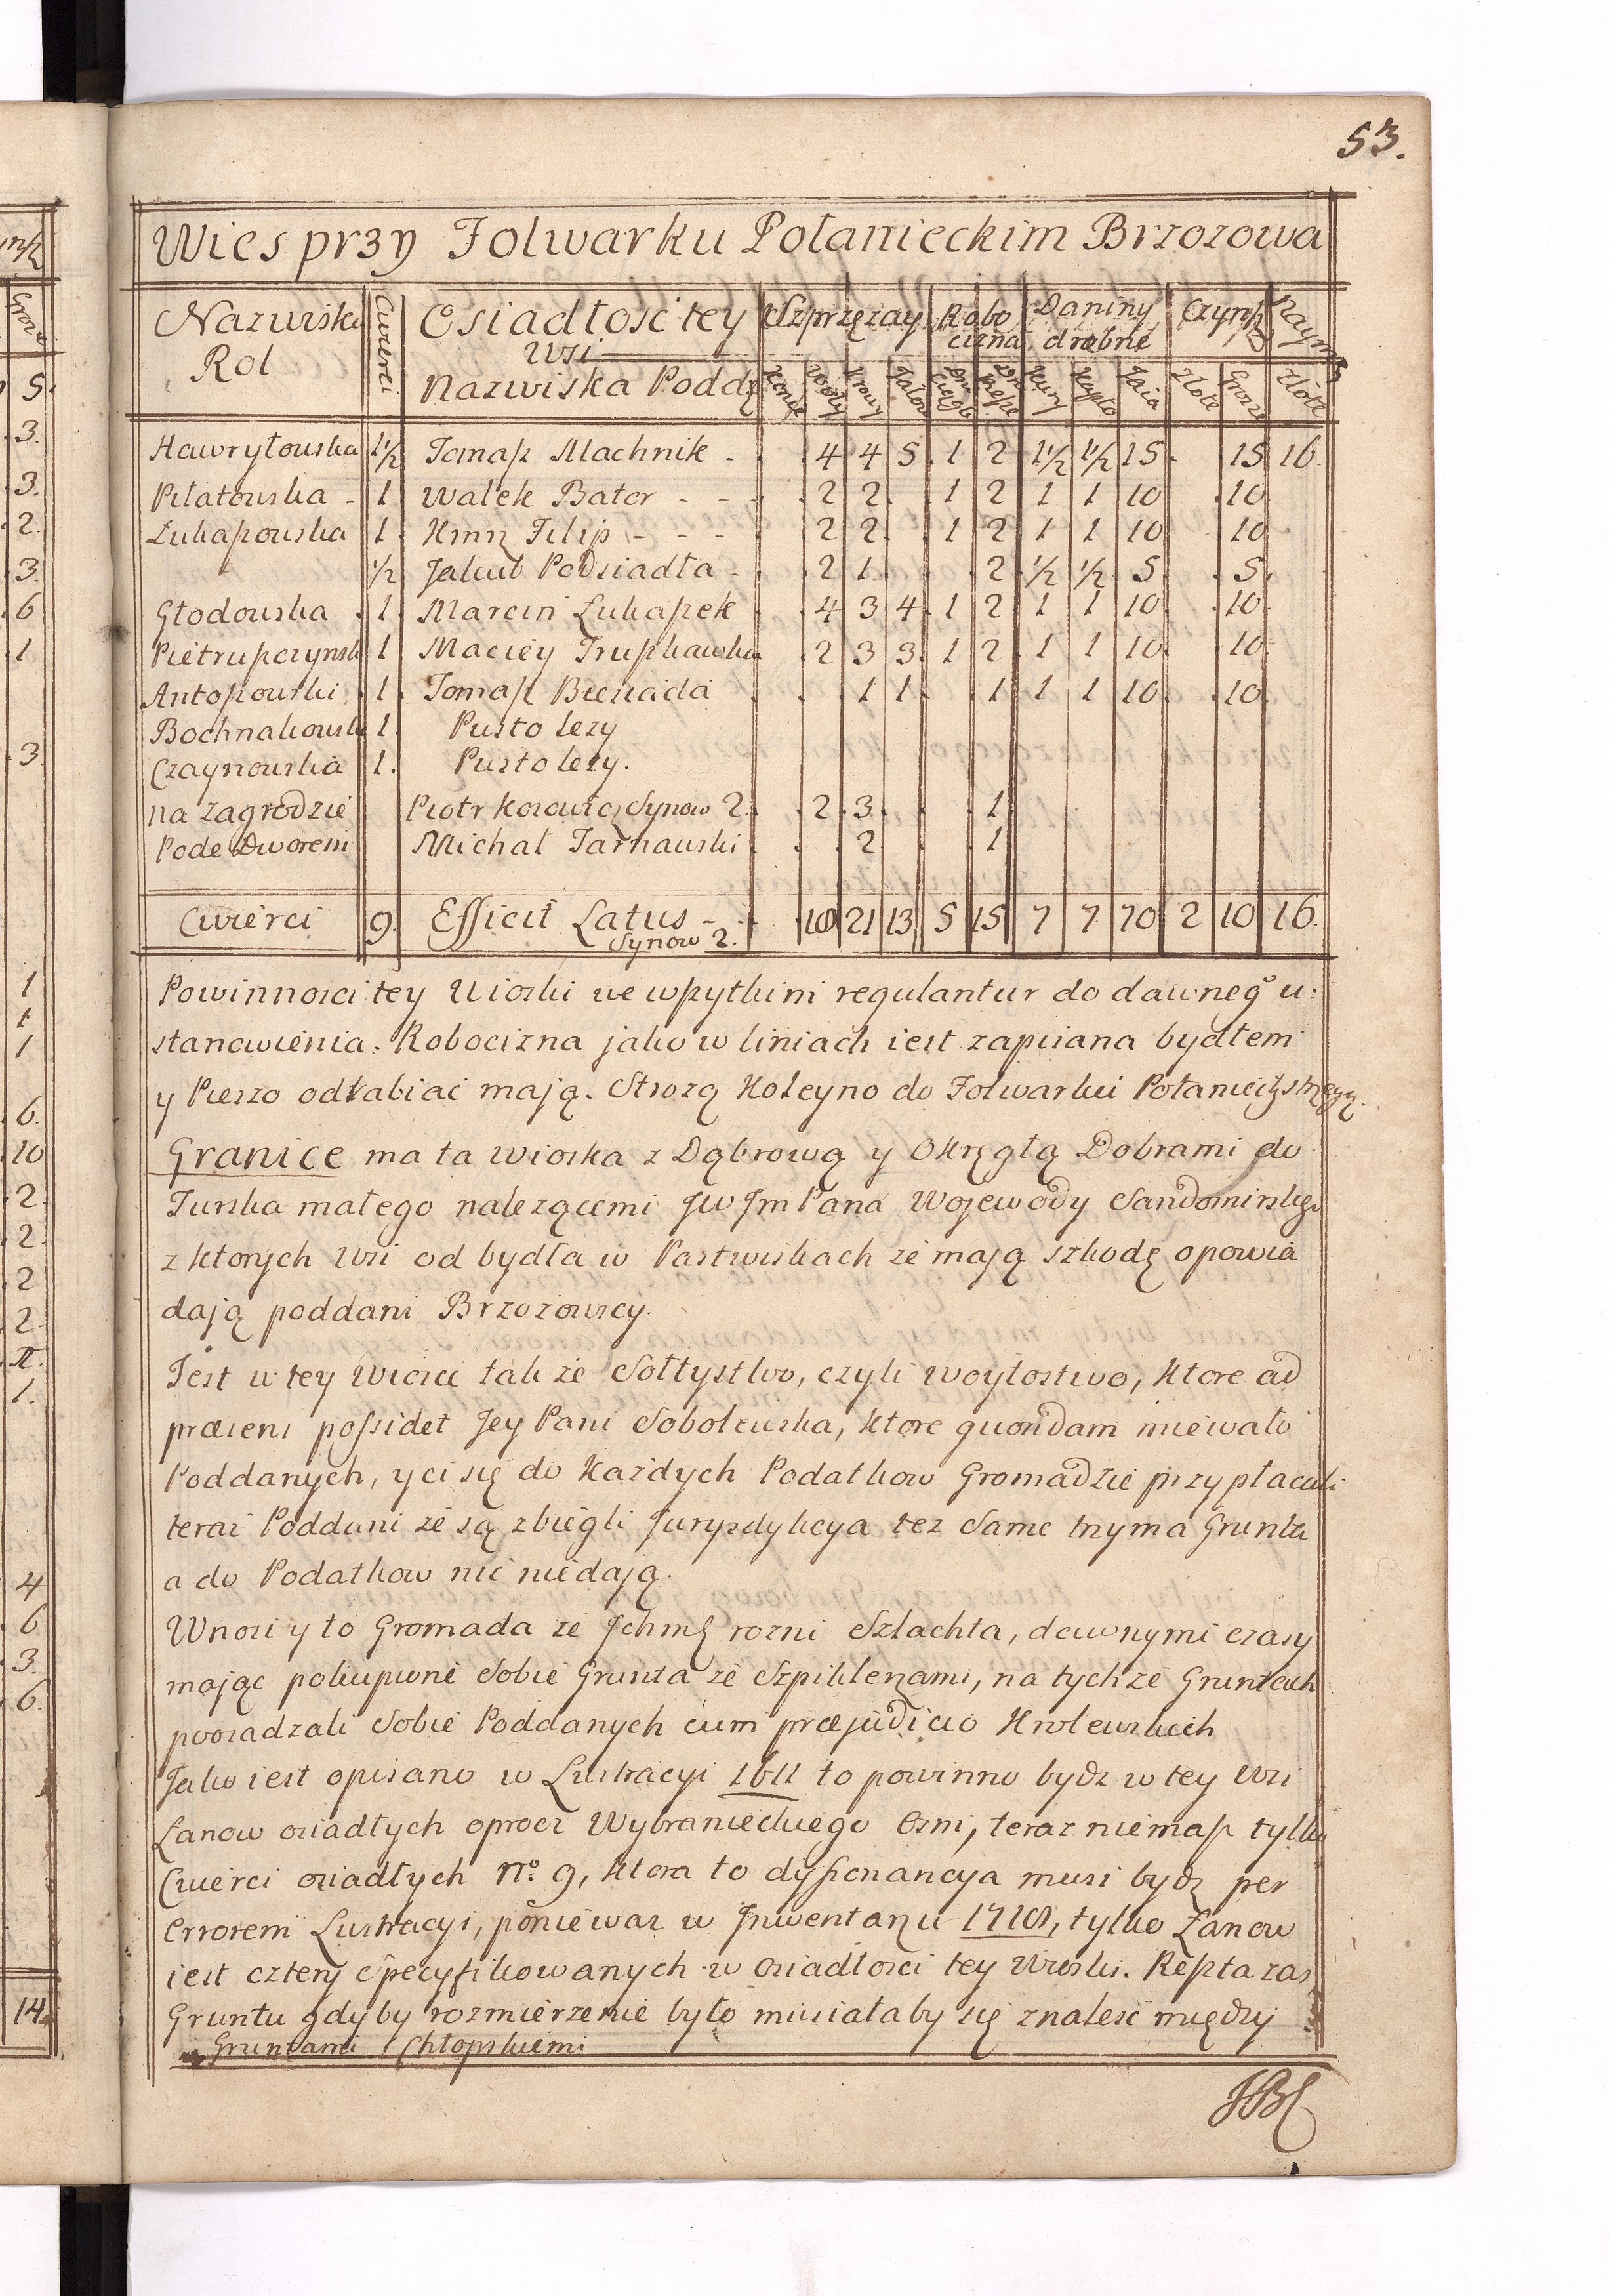 53.
Wies przy Folwarku Połanieckim Brzozowa
Nazwiska Rol | Cwierci | Osiadłosc tey Wsi Nazwiska Podd | Szprzęzay | Robocizna | Daniny drobne | Czynsz | Naym
Konie | Woły | Krowy | Jałow | Dni Ciągłe | Dni Piesze | Kury | Kapło | Jaia | Złote | Grosze | Złote
Hawryłowska | 1½ | Tomasz Machnik - | . | 4 | 4 | 5 | 1 | 2 | 1½ | 1½ | 15 | . | 15 | 16.
Piłatowska - | 1 | Walek Bator - - - | . | 2 | 2 | . | 1 | 2 | 1 | 1 | 10 | . | 10
Łukaszowska | 1 | Kmn Filip - - - | . | 2 | 2 | . | 1 | 2 | 1 | 1 | 10 | . | 10
½ | Jakub Podsiadła - | . | 2 | 1 | . | . | 2 | ½ | ½ | 5 | . | 5
Głodowska | 1 | Marcin Łukaszek | . | 4 | 3 | 4 | 1 | 2 | 1 | 1 | 10 | . | 10
Pietrupczynsk | 1 | Maciey Truszkawska | . | 2 | 3 | 3 | 1 | 2 | 1 | 1 | 10 | . | 10
Antoszowski | 1 | Tomasz Bieniada | . | . | 1 | 1 | . | 1 | 1 | 1 | 10 | . | 10
Bochnakowsk | 1 | Pusto lezy
Czaynowska | 1. | Pusto lezy.
na zagrodzie | Piotr Kosowicz Synow 2. | . | 2 | 3 | . | . | 1
Pode Dworem | Michał Tarnawski | . | . | 2 | . | . | 1
Cwierci | 9. | Efficit Latus - - Synow 2. | . | 18 | 21 | 13 | 5 | 15 | 7 | 7 | 70 | 2 | 10 | 16.
Powinnosci tey Wioski we wszytkim regulantur do dawneg° u:
stanowienia: Robocizna jako w liniach iest zapisana bydłem
y Pieszo odrabiac mają. Strozą Koleyno do Folwarku Połanieck strzegą.
Granice ma ta wioska z Dąbrową y Okrągłą Dobrami do
Turska małego nalezącemi JW Jm Pana Wojewody Sandomirskg°
z ktorych Wsi od bydła w Pastwiskach ze mają szkodę opowia
dają poddani Brzozowscy.
Jest w tey Wiosce takze Sołtystwo, czyli woytostwo, ktore ad
præsens possidet Jey Pani Sobolewska, ktore quondam miewało
Poddanych, y ci się do Kazdych Podatkow Gromadzie przypłacali
teraz Poddani ze są zbiegli Juryzdykcya tez Same trzyma Grunta
a do Podatkow nic niedają.
Wnosi y to Gromada ze Jchmę rozni Szlachta, dawnymi czasy
mając pokupione Sobie Grunta ze Szpiklerzami, na tychze Gruntach
poosadzali Sobie Poddanych cum præjudicio Krolewskich
Jako iest opisano w Lustracyi 1611 to powinno bydz w tey Wsi
Łanow osiadłych oprocz Wybranieckiego Osm, teraz niemasz tylko
Cwierci osiadłych N° 9, ktora to dyssonancya musi bydz per
errorem Lustracyi, poniewaz w Jnwentarzu 1718, tylko Łanow
iest cztery specyfikowanych w osiadłosci tey Wioski. Reszta zas
Gruntu gdyby rozmierzenie było musiałaby się znalesc między
Gruntami Chłopskiemi